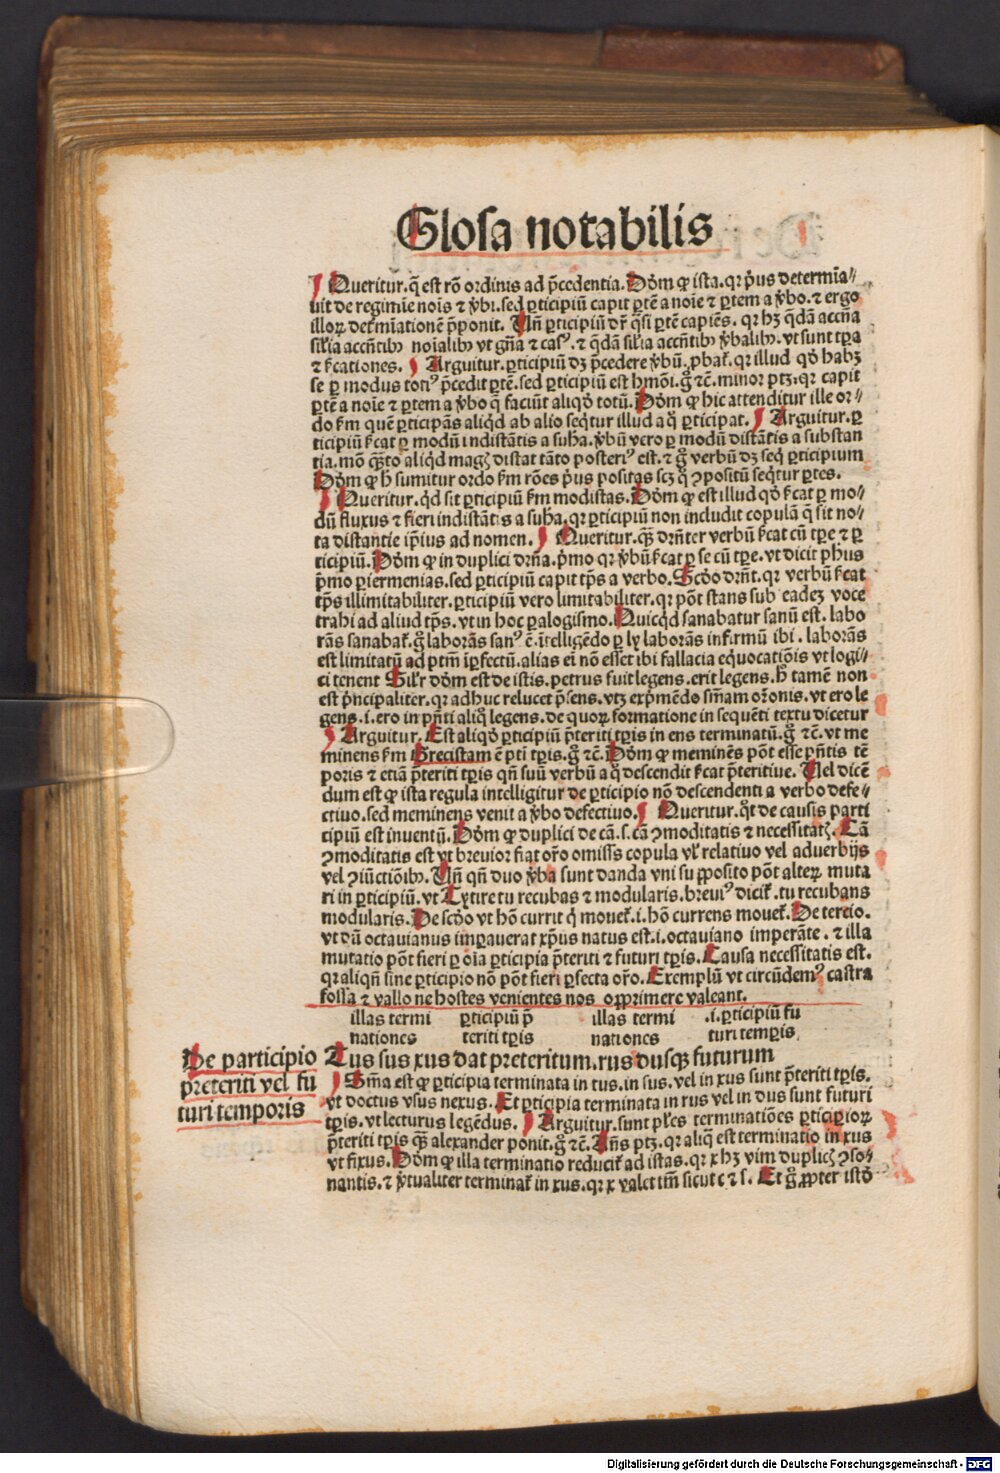 Glosa notabilis
Queritur. q̃ est rõ ordinis ad p̃cedentia. Dõm ꝙ ista. qr p̃us determĩa⸗
uit de regimĩe noĩs ⁊ v̓bi. sed ꝑticipiũ capit ꝑtẽ a noĩe ⁊ ꝑtem a v̓bo. ⁊ ergo
illoꝝ det̓mĩationẽ p̃ponit. Uñ ꝑticipiũ dr̃ q̃si ꝑtẽ capiẽs. qr hꝫ q̃dã accña
sĩlia accñtibꝰ noĩalibꝰ vt gña ⁊ casꝰ. ⁊ q̃dã sĩlia accñtibꝰ v̓balibꝰ. vt sunt tꝑa
⁊ ſ̃cationes. Arguitur. ꝑticipiũ dꝫ p̃cedere v̓bũ. ꝓbat̃. qr illud qđ habꝫ
se ꝑ modus totiꝰ p̃cedit ꝑtẽ. sed ꝑticipiũ est hmõi. g̊ ⁊c̃. minor ptꝫ. qr capit
ꝑtẽ a noĩe ⁊ ꝑtem a v̓bo q̃ faciũt aliqđ totũ. Dõm ꝙ hic attenditur ille or⸗
do ẜm quẽ ꝑticipãs aliqd ab alio seq̃tur illud a q̊ ꝑticipat. Arguitur. ꝑ
ticipiũ ſ̃cat ꝑ modũ indistãtis a suba. v̓bũ vero ꝑ modũ distãtis a substan
tia. mõ q̃to aliqd magꝭ distat tãto posteriꝰ est. ⁊ g̊ verbũ dꝫ seq̃ ꝑticipium
Dõm ꝙ h̃ sumitur ordo ẜm rões p̃us positas scꝫ q̊ ꝯpositũ seq̃tur ꝑtes.
Queritur. qd sit ꝑticipiũ ẜm modistas. Dõm ꝙ est illud qđ ſ̃cat ꝑ mo⸗
dũ fluxus ⁊ fieri indistãtis a suba. qr ꝑticipiũ non includit copulã q̃ sit no⸗
ta distantie ip̃ius ad nomen. Queritur. qũo dr̃nter verbũ ſ̃cat cũ tꝑe ⁊ ꝑ
ticipiũ. Dõm ꝙ in duplici dr̃na. p̃mo qr v̓bũ ſ̃cat ꝑ se cũ tꝑe. vt dicit phus
p̃mo ꝑiermenias. sed ꝑticipiũ capit tp̃s a verbo. Scđo dr̃nt. qr verbũ ſ̃cat
tp̃s illimitabiliter. ꝑticipiũ vero limitabiliter. qr põt stans sub eadeꝫ voce
trahi ad aliud tp̃s. vt in hoc ꝑalogismo. Quicq̃d sanabatur sanũ est. labo
rãs sanabat̃. g̊ laborãs sanꝰ ẽ. ĩtelligẽdo ꝑ ly laborãs infirmũ ibi. laborãs
est limitatũ ad ptm̃ iꝑfectũ. alias ei nõ esset ibi fallacia eq̃uocatiõis vt logi⸗
ci tenent Silr dõm est de istis. petrus fuit legens. erit legens. h̃ tamẽ non
est p̃ncipaliter. qr adhuc relucet p̃sens. vtꝫ exp̃mẽdo sm̃am or̃onis. vt ero le
gens. i. ero in pñti aliq̃ legens. de quoꝝ formatione in sequẽti textu dicetur
Arguitur. Est aliqđ ꝑticipiũ p̃teriti tꝑis in ens terminatũ. g̊ ⁊c̃. vt me
minens ẜm Grecistam ẽ pti tꝑis. g̊ ⁊c̃. Dõm ꝙ meminẽs põt esse pñtis tẽ
poris ⁊ etiã p̃teriti tꝑis qñ suũ verbũ a q̊ descendit ſ̃cat p̃teritiue. Uel dicẽ
dum est ꝙ ista regula intelligitur de ꝑticipio nõ descendenti a verbo defe⸗
ctiuo. sed meminens venit a v̓bo defectiuo. Queritur. q̃t de causis parti
cipiũ est inuentũ. Dõm ꝙ duplici de cã. s. cã ꝯmoditatis ⁊ necessitatꝭ. Cã
ꝯmoditatis est vt breuior fiat or̃o omissis copula vl̓ relatiuo vel aduerbijs
vel ꝯiũctiõibꝰ. Uñ qñ duo v̓ba sunt danda vni supposito põt alteꝝ muta
ri in ꝑticipiũ. vt Tytire tu recubas ⁊ modularis. breuiꝰ dicit̃. tu recubans
modularis. De scđo vt hõ currit q̓ mouet̃. i. hõ currens mouet̃. De tercio.
vt dũ octauianus imꝑauerat xp̃us natus est. i. octauiano imperãte. ⁊ illa
mutatio põt fieri ꝑ oĩa ꝑticipia p̃teriti ⁊ futuri tꝑis. Causa necessitatis est.
qr aliqñ sine ꝑticipio nõ põt fieri ꝑfecta or̃o. Exemplũ vt circũdemꝰ castra
fossa ⁊ vallo ne hostes venientes nos opprimere valeant.
illas termi ꝑticipiũ p̃ illas termi .i. ꝑticipiũ fu
nationes teriti tꝑis nationes turi temꝑis
De participio
preteriti vel fu
turi temporis
Tus sus xus dat preteritum. rus dusqꝫ futurum
Sm̃a est ꝙ ꝑticipia terminata in tus. in sus. vel in xus sunt p̃teriti tꝑis.
vt doctus vsus nexus. Et ꝑticipia terminata in rus vel in dus sunt futuri
tꝑis. vt lecturus legẽdus. Arguitur. sunt pl̓es terminatiões ꝑticipioꝝ
p̃teriti tꝑis q̃ꝫ alexander ponit. g̊ ⁊c̃. Añs ptꝫ. qr aliq̃ est terminatio in xus
vt fixus. Dõm ꝙ illa terminatio reducit̃ ad istas. qr x hꝫ vim duplicꝭ ꝯso⸗
nantis. ⁊ v̓tualiter terminat̃ in xus. qr x valet tm̃ sicut c ⁊ s. Et g̊ ꝓpter istđ
Digitalisierung gefördert durch die Deutsche Forschungsgemeinschaft - DFG